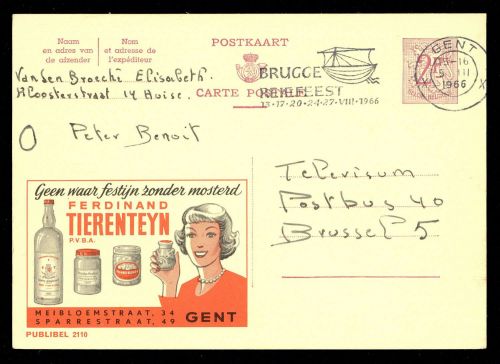 Naam
en adres van
de afzender
Nom
et adresse de
l'expéditeur
POSTKAART
CARTE POSTALE
Van den Broecke Elisabeth
Kloosterstraat 14 Huise.
BRUGGE
REIEFEEST
13·17·20·24·27·VIII·1966
GENT
1966
X
2F
O Peter Benoit
Televisum
Postbus 40
Brussel 5
Geen waar festijn zonder mosterd
FERDINAND
TIERENTEYN
P.V.B.A.
MEIBLOEMSTRAAT, 34
SPARRESTRAAT, 49
GENT
PUBLIBEL 2110